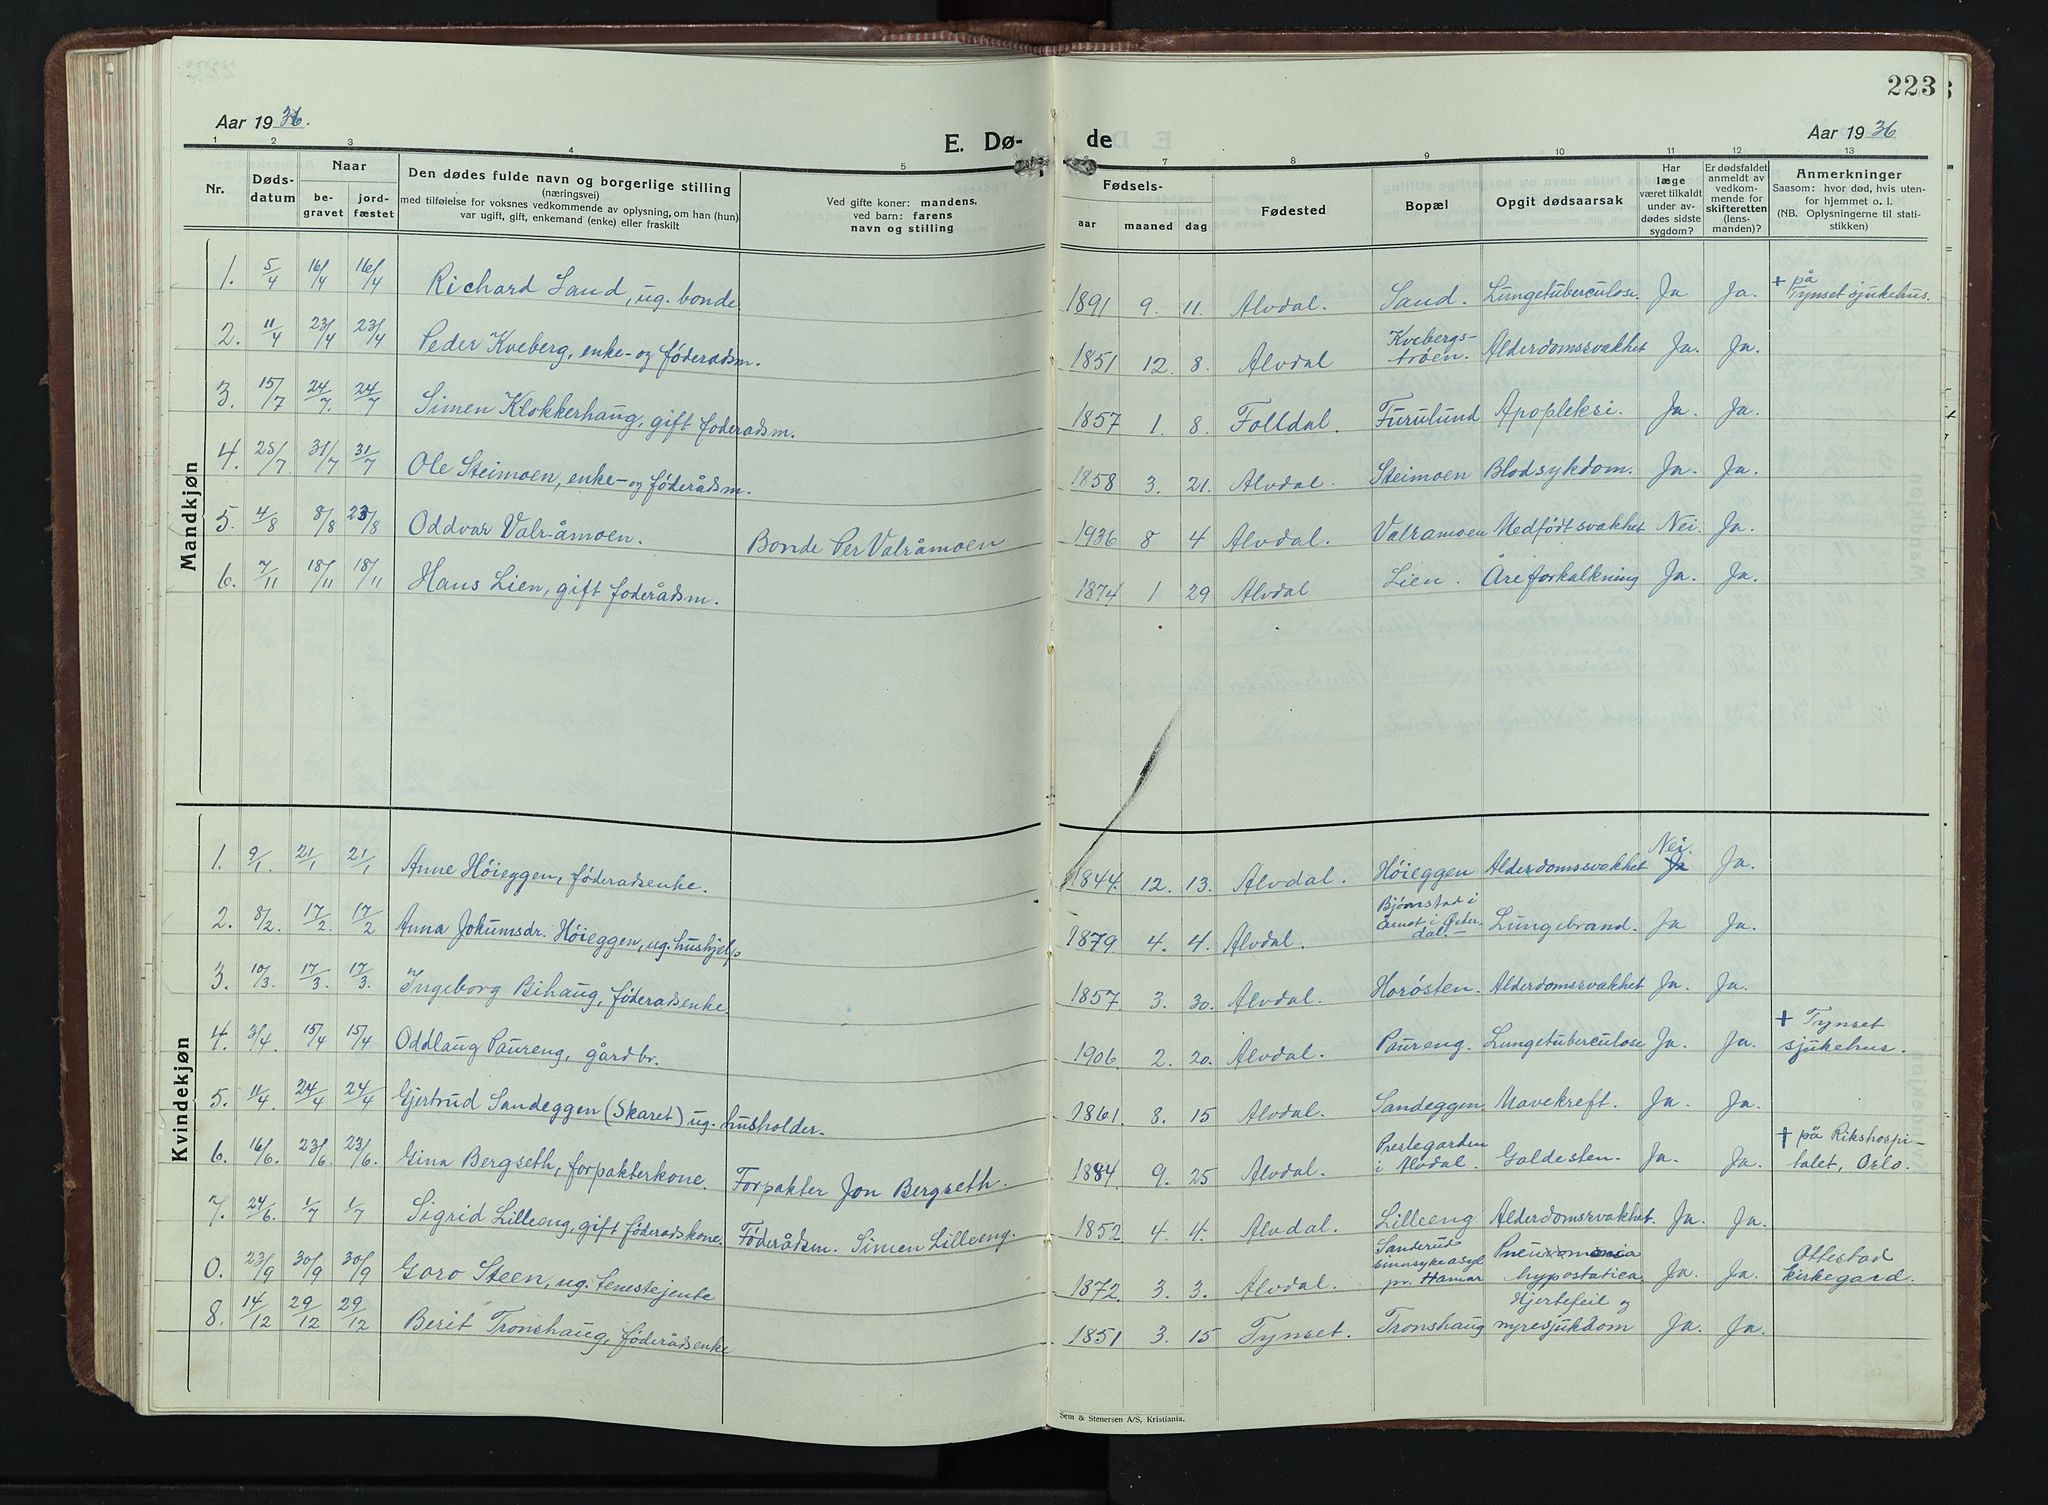 223
Aar 1936.
E. Dø-
de
Aar 1936
1 2 3 4 5 7 8 9 10 11 12 13
Nr.
Døds-
datum
Naar
be-
gravet
jord-
fæstet
Den dødes fulde navn og borgerlige stilling
(næringsvei)
med tilføielse for voksnes vedkommende av oplysning, om han (hun)
var ugift, gift, enkemand (enke) eller fraskilt
Ved gifte koner: mandens,
ved barn: farens
navn og stilling
Fødsels-
aar maaned dag
Fødested
Bopæl
Opgit dødsaarsak
Har
læge
været tilkaldt
under av-
dødes sidste
sygdom?
Er dødsfaldet
anmeldt av
vedkom-
mende for
skifteretten
(lens-
manden)?
Anmerkninger
Saasom: hvor død, hvis uten-
for hjemmet o. l.
(NB. Oplysningerne til stati-
stikken)
Mandkjøn
1. 5/4 16/4 16/4 Richard Sand, ug. bonde. 1891 9. 11. Alvdal. Sand. Lungetuberculose. Ja Ja. + på
Tynset sjukehus.
2. 11/4 23/4 23/4 Peder Kveberg, enke- og føderadsm. 1851 12. 8. Alvdal Kvebergs-
trøen. Alderdomssvakhet Ja. Ja.
3. 15/7 24/7. 24/7 Simen Klokkerhaug, gift føderadsm. 1857 1. 8. Folldal. Furulund Apopleksi. Ja. Ja.
4. 25/7. 31/7 31/7 Ole Steimoen, enke- og føderådsm. 1858 3. 21. Alvdal. Steimoen Blodsykdom. Ja. Ja.
5. 4/8 8/8 23/8 Oddvar Valråmoen. Bonde Per Valråmoen 1936 8 4 Alvdal. Valramoen Medfødt svakhet Nei Ja.
6. 7/11 18/11 18/11 Hans Lien, gift foderådsm. 1874 1 29 Alvdal Lien. Åreforkalkning Ja. Ja.
Kvindekjøn
1. 9/1. 21/1 21/1 Anne Höieggen, føderadsenke. 1844. 12. 13. Alvdal. Höieggen Alderdomssvakhet Nei. Ja Ja.
2. 8/2. 17/2. 17/2 Anna Jokumsdr. Höieggen, ug. hushjelp 1879 4. 4. Alvdal. Bjørnstad i
Åmot i Øster-
dal. Lungebrand. Ja Ja.
3. 10/3. 17/3. 17/3. Ingeborg Bihaug, føderadsenke. 1857 3. 30. Alvdal. Horøsten. Alderdomssvakhet Ja. Ja.
4. 3/4. 15/4 15/4 Oddlaug Paureng, gårdbr. 1906 2. 20. Alvdal. Paureng. Lungetuberculose Ja. Ja. + Tynset
sjukehus.
5. 11/4. 24/4 24/4 Gjertrud Sandeggen (Skaret) ug. husholder. 1861 8. 15 Alvdal. Sandeggen Mavekreft. Ja. Ja.
6. 16/6. 23/6. 23/6. Gina Bergseth, forpakterkone. Forpakter Jon Bergseth. 1884 9. 25 Alvdal. Prestegarden
i Alvdal. Galdesten. Ja. Ja. + på Rikshospi-
talet, Oslo.
7. 24/6. 1/7 1/7 Sigrid Lilleeng, gift føderadskone. Føderådsm. Simen Lilleeng. 1852 4. 4. Alvdal. Lilleeng Alderdomssvakhet. Ja. Ja.
0. 23/9 30/9 30/9 Goro Steen, ug. tenestejente 1872 3. 3. Alvdal. Sanderud
sinnsykeasyl
pr. Hamar Pneumonia
hypostatica Ja. Ja. Ottestad
kirkegard.
8. 14/12 29/12 29/12 Berit Tronshaug, føderådsenke 1851 3. 15 Tynset. Tronshaug Hjertefeil og
nyresjukdom Ja. Ja.
Sem & Stenersen A/S, Kristiania.